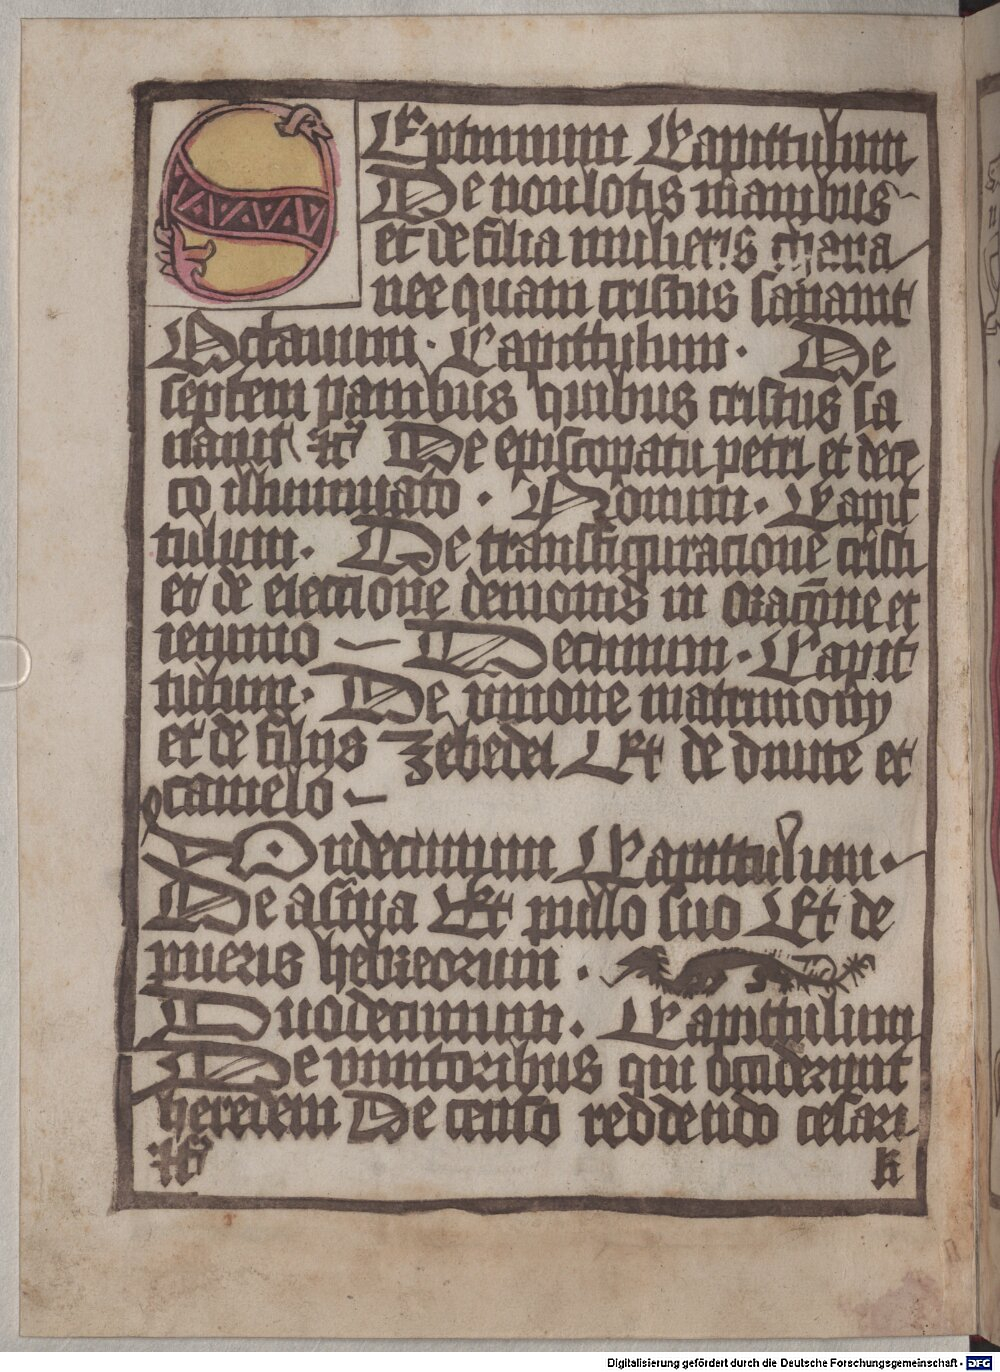 SEptimum Capittulum
De non lotis manibus
et de filia mulieris chana
nee quam cristus sanauit
Octauum · Capittulum · De
septem panibus quibus cristus sa
nauit etc De episcopatu petri et de ce
co illuminato · Nonum · Capit
tulum · De transfiguracione cristi
et de eiectione demonis in oracōne et
ieiunio Decimum · Capit
tulum · De unione matrimonij
et de filijs Zebedei Et de diuite et
camelo
Undecimum Capittulum ·
De asina Et pullo suo Et de
pueris hebreorum ·
Duodecimum · Capittulum
De vinitoribus qui occiderunt
heredem De censo reddendo cesari
etc k
Digitalisierung gefördert durch die Deutsche Forschungsgemeinschaft - DFG